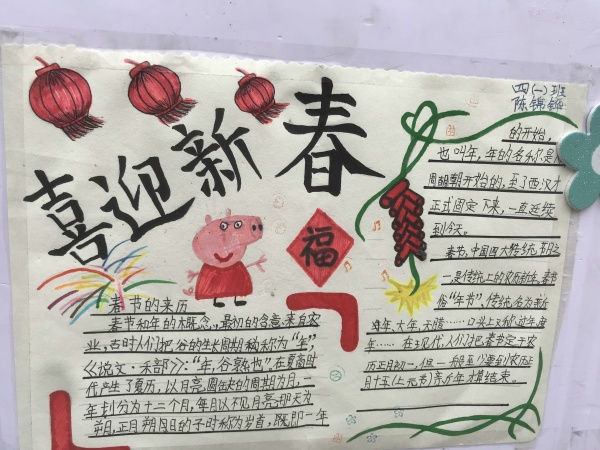 喜迎新春
福
四(一)班
陈锦
春节的来历
春节和年的概念,最初的含意来自农
业,古时人们把谷的生长周期称为“年”,
《说文·禾部》:“年,谷熟也”,在夏商时
代产生了夏历,以月亮圆缺的周期为月,一
年划分为十二个月,每月以不见月亮那天为
朔,正月朔日的子时称为岁首,既即一年
的开始,
也叫年,年的名称是从
周朝开始的,至了西汉才
正式固定下来,一直延续
到今天。
春节,中国四大传统节日之
一是传统上的农历新年。春节
俗“年节”,传统名为新
年、大年、天腊……口头上又称过年、庆
年……在现代,人们把春节定于农
历正月初一,但一般至少要到农历正
月十五(上元节)新年才算结束。